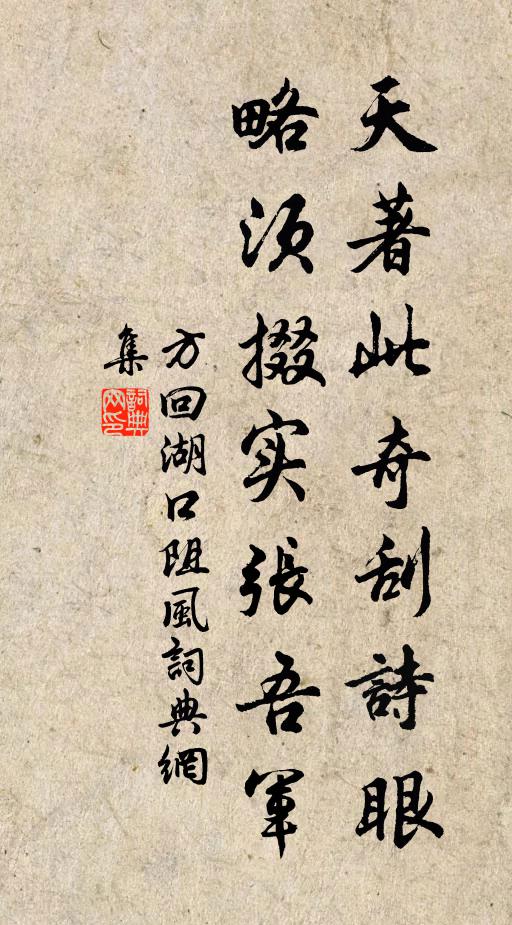 天著此奇刮詩眼
略須掇实張吾軍
方回湖口阻風詞典網
集
詞典網印